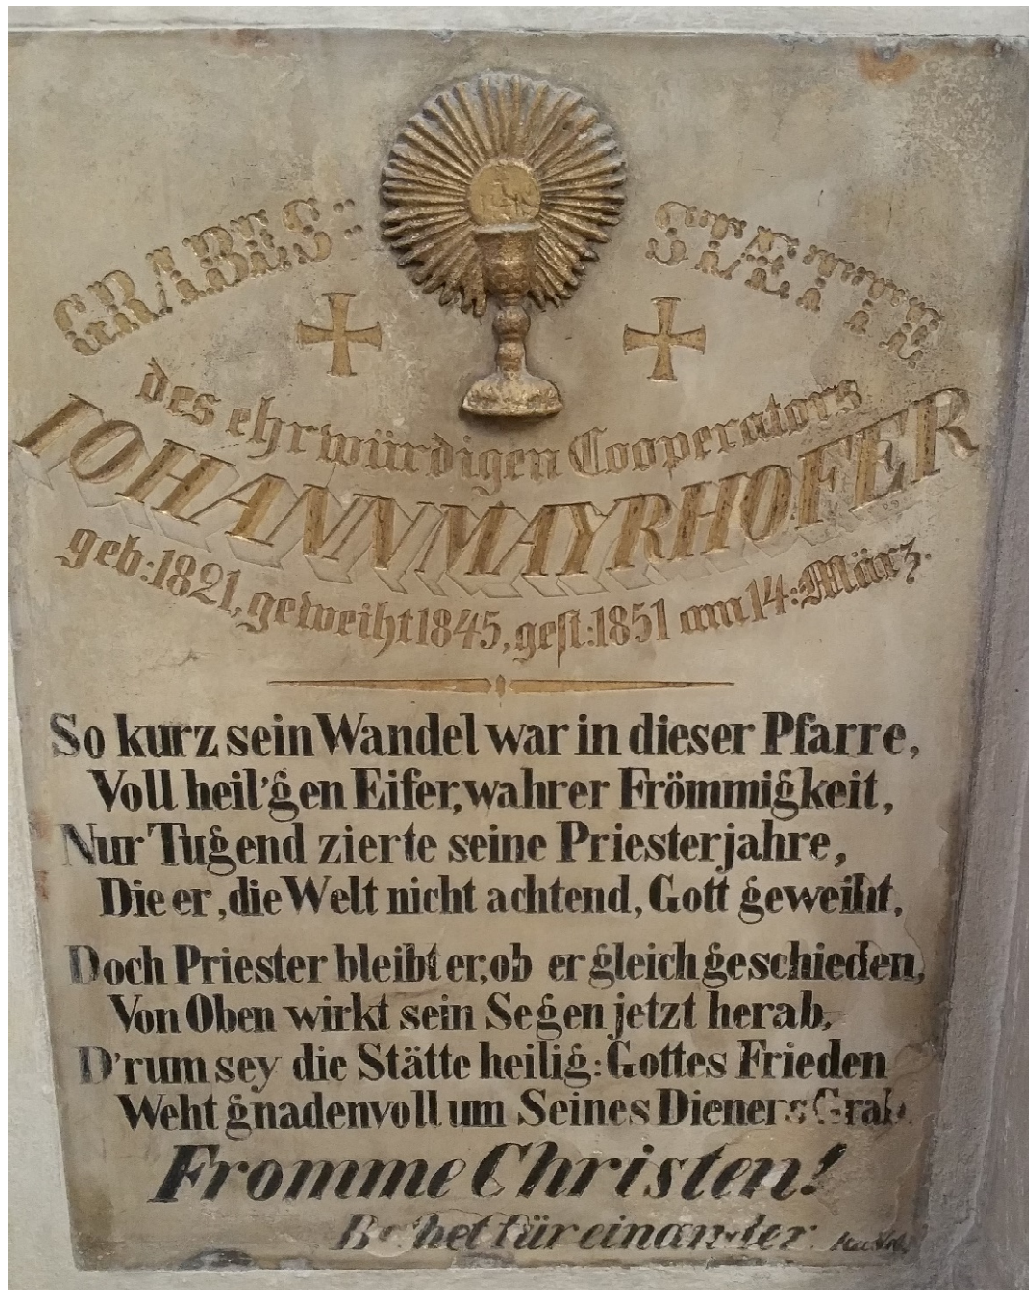 GRABES= STÆTTE
des ehrwürdigen Cooperators
IOHANN MAYRHOFER
geb: 1821, geweiht 1845, gest: 1851 am 14: März.
So kurz sein Wandel war in dieser Pfarre,
Voll heil'gen Eifer, wahrer Frömmigkeit,
Nur Tugend zierte seine Priesterjahre,
Die er, die Welt nicht achtend, Gott geweiht.
Doch Priester bleibt er, ob er gleich geschieden,
Von Oben wirkt sein Segen jetzt herab.
D'rum sey die Stätte heilig: Gottes Frieden
Weht gnadenvoll um Seines Dieners Grab.
Fromme Christen!
Bethet für einander.